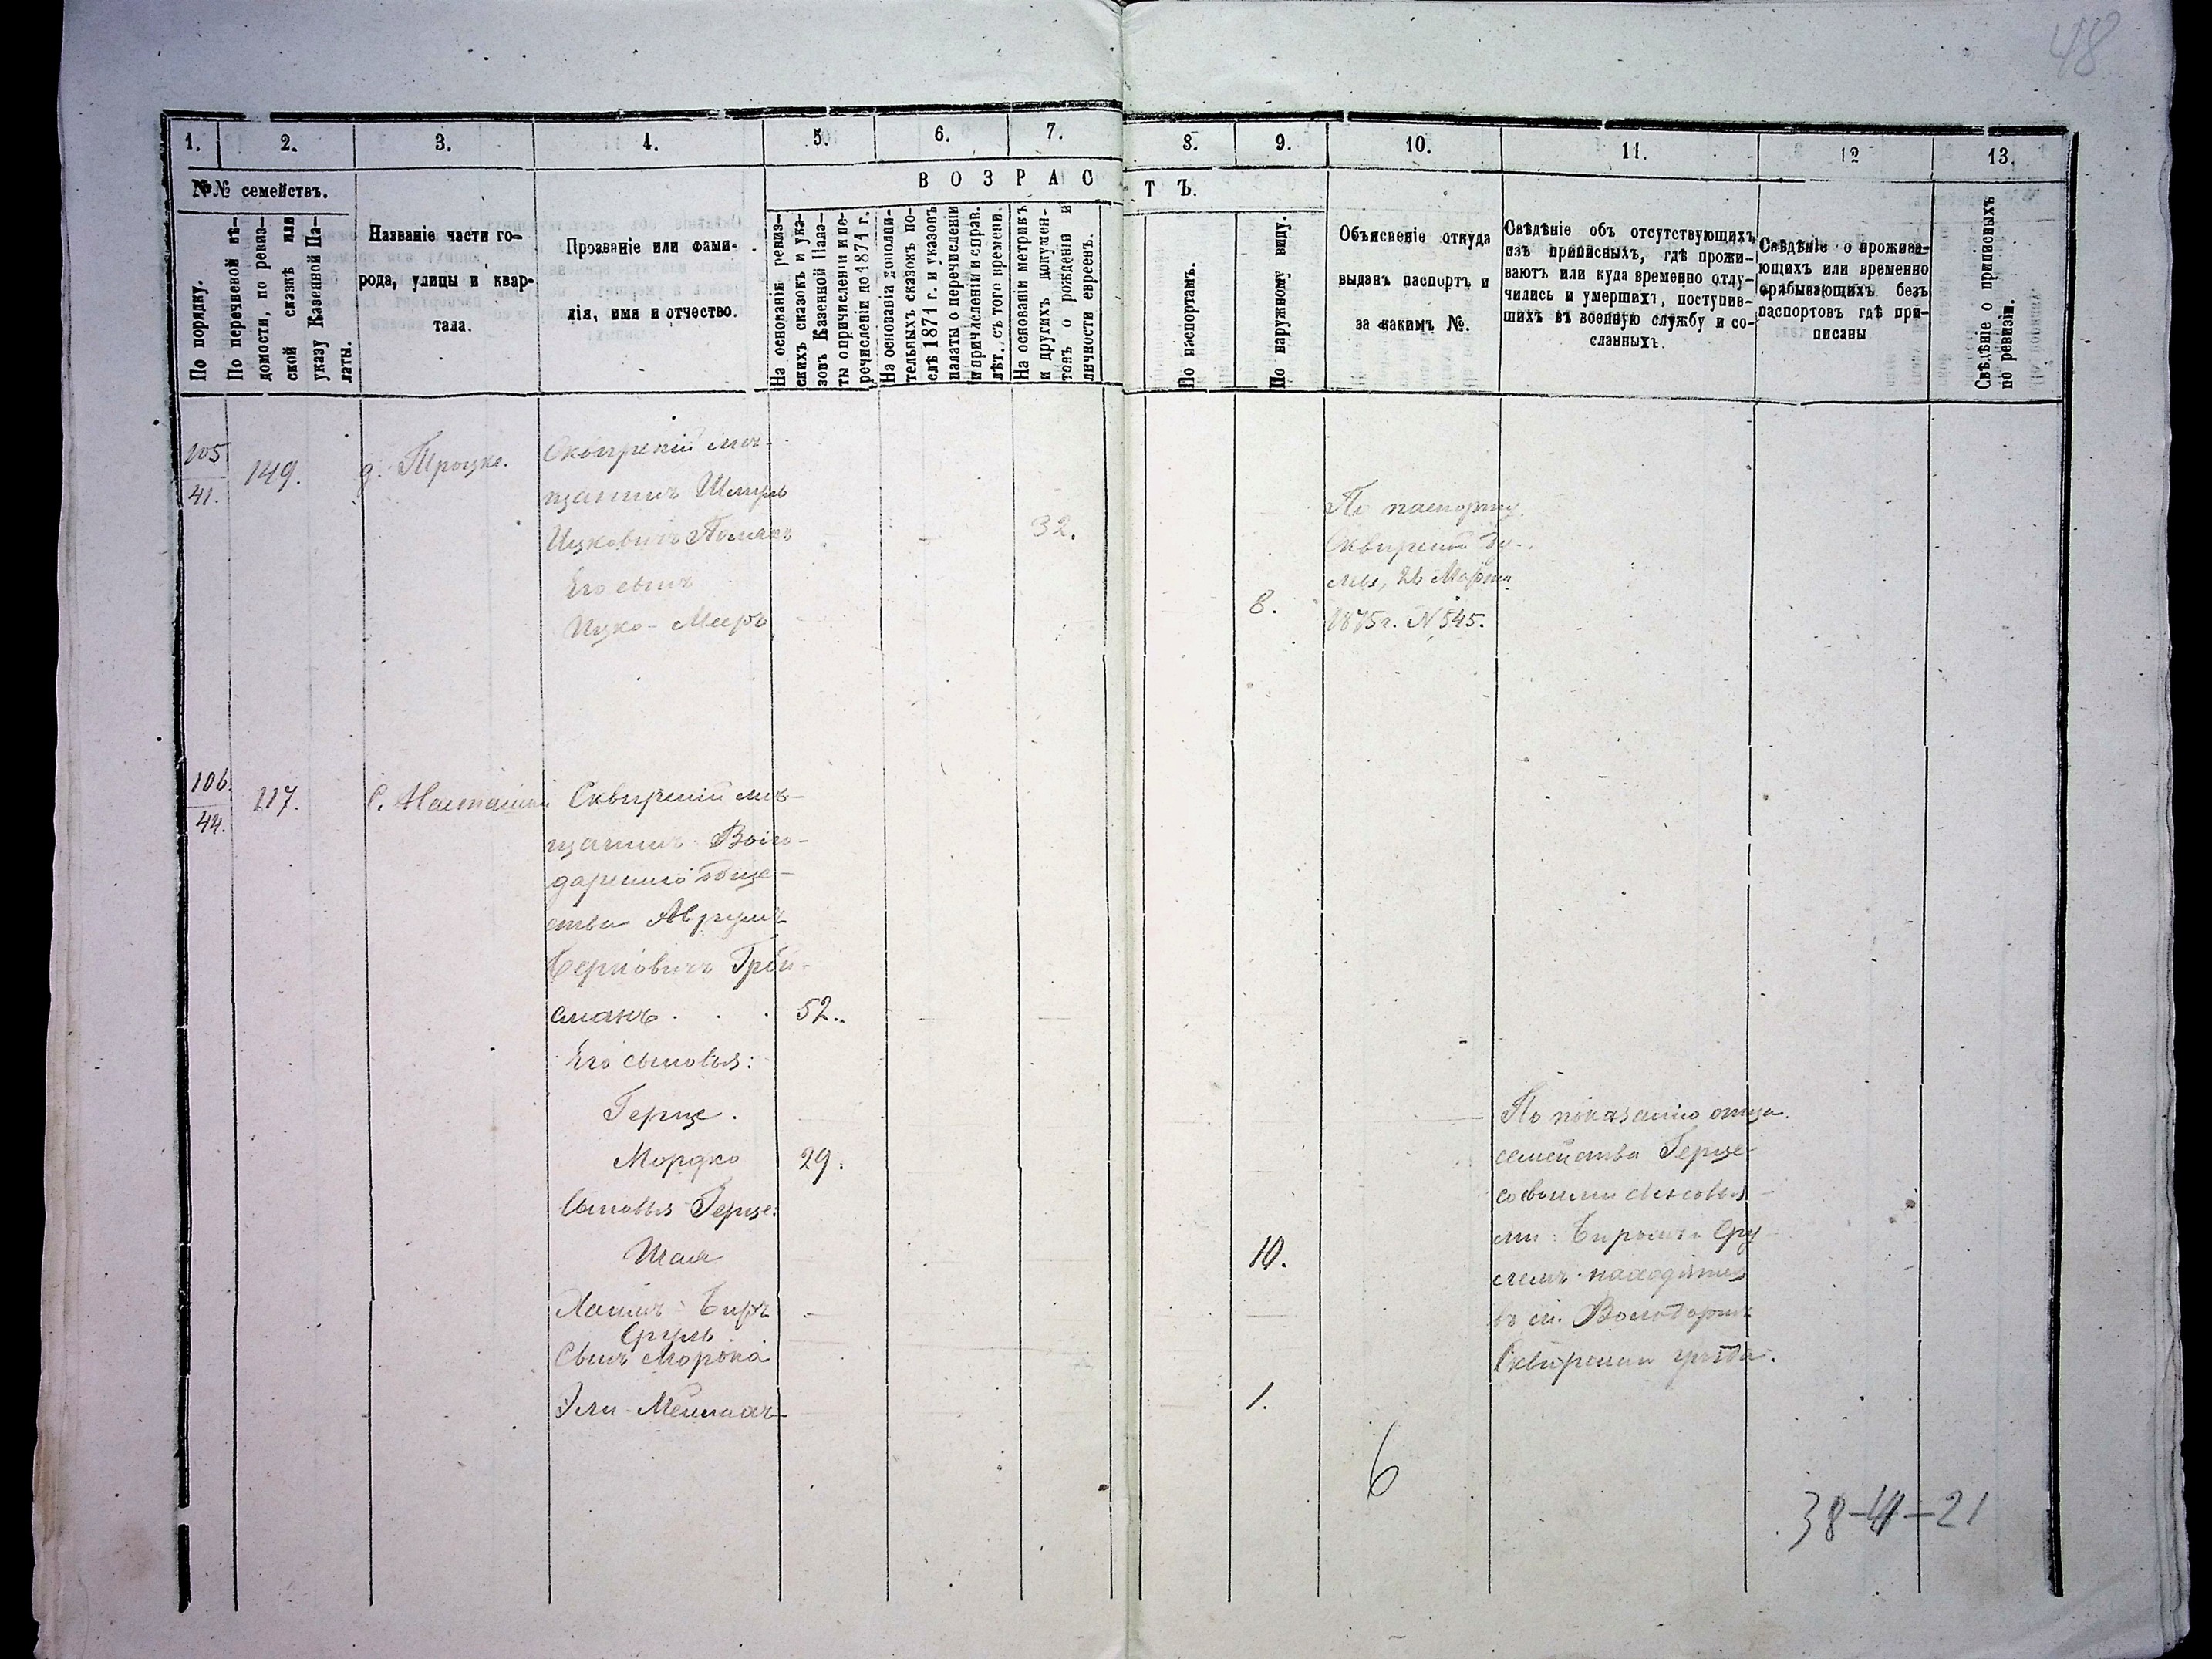 48
1. 2. 3. 4. 5. 6. 7. 8. 9. 10. 11. 12 13.
№№ семействъ.
В О З Р А С Т Ъ.
По порядку.
По перечневой вѣ-
домости, по ревиз-
ской сказкѣ или
указу Казенной Па-
латы.
Названіе части го-
рода, улицы и квар-
тала.
Прозваніе или фами-
лія, имя и отчество.
На основаніи ревиз-
скихъ сказокъ и ука-
зовъ Казенной Пала-
ты о причисленіи и пе-
речисленіи до 1871 г.
На основаніи дополни-
тельныхъ сказокъ по-
слѣ 1871 г. и указовъ
палаты о перечисленіи
и причисленіи и справ.
лѣт. съ того времени.
На основаніи метрикъ
и другихъ докумен-
товъ о рожденіи и
личности евреевъ.
По паспортамъ.
По наружному виду.
Объясненіе откуда
выданъ паспортъ и
за какимъ №.
Свѣдѣніе объ отсутствующихъ
изъ приписныхъ, гдѣ прожи-
ваютъ или куда временно отлу-
чились и умершихъ, поступив-
шихъ въ военную службу и со-
сланныхъ.
Свѣдѣніе о прожива-
ющихъ или временно
прибывающихъ безъ
паспортовъ гдѣ при-
писаны
Свѣдѣніе о приписныхъ
по ревизіи.
105
41.
149.
д. Троцке.
Сквирскій мѣ-
щанинъ Шмуль
Ицковичъ
32.
Его сынъ
Ицко-Мееръ
8.
По паспорту
Сквирской Ду-
мы, 26 Марта
1875 г. N 545.
106.
44.
217.
С. Насташки
Сквирскій мѣ-
щанинъ Воло-
дарскаго обще-
ства Аврумъ
Берковичъ
сманъ . . . 52.
Его сыновья:
Герше.
Мордко 29.
Сыновья Герше:
Шая 10.
Хаимъ-Беръ
Сруль
Сынъ Мордка
Эли-Мейлахъ 1.
По показанію отца
семейства Герше
со своими сыновья-
ми Беромъ и Сру
лемъ находятся
въ м. Володаркѣ
Сквирскаго уѣзда.
6
38-41-21